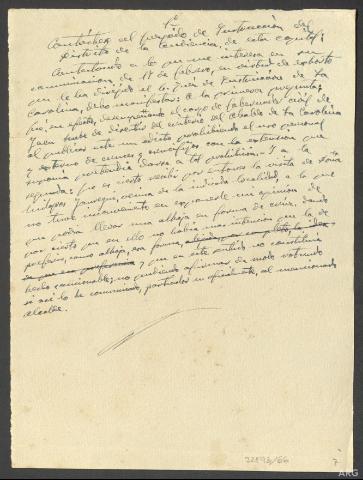 1º
Contestar al juzgado de Instrucción del
Distrito de la Audiencia, de esta capital:
Contestando a lo que me interesa en su
comunicación de 18 de febrero, en virtud de exhorto
que le ha dirigido el Juzgado de Instrucción de La
Carolina, debo manifestar: a la primera pregunta:
que, en efecto, desempeñando el cargo de Gobernador civil de
Jaén hube de disentir del criterio del alcalde de La Carolina
al publicar este un edicto prohibiendo el uso personal
y externo de cruces y crucifijos con la extensión que
suponía pretendía darse a tal prohibición. Y a la
segunda: que es cierto recibí por entonces la visita de doña
vecina de la indicada localidad, a la que
no tuve inconveniente en exponerle mi opinión de
que podía llevar una alhaja en forma de cruz, dando
por cierto que en ello no había más intención que la de
preferir, como alhaja, esa forma,
y que en este sentido no constituía
hecho sancionable; no pudiendo afirmar de modo rotundo
si así lo he comunicado, particular ni oficialmente, al mencionado
alcalde.
32893/66
7
ARG